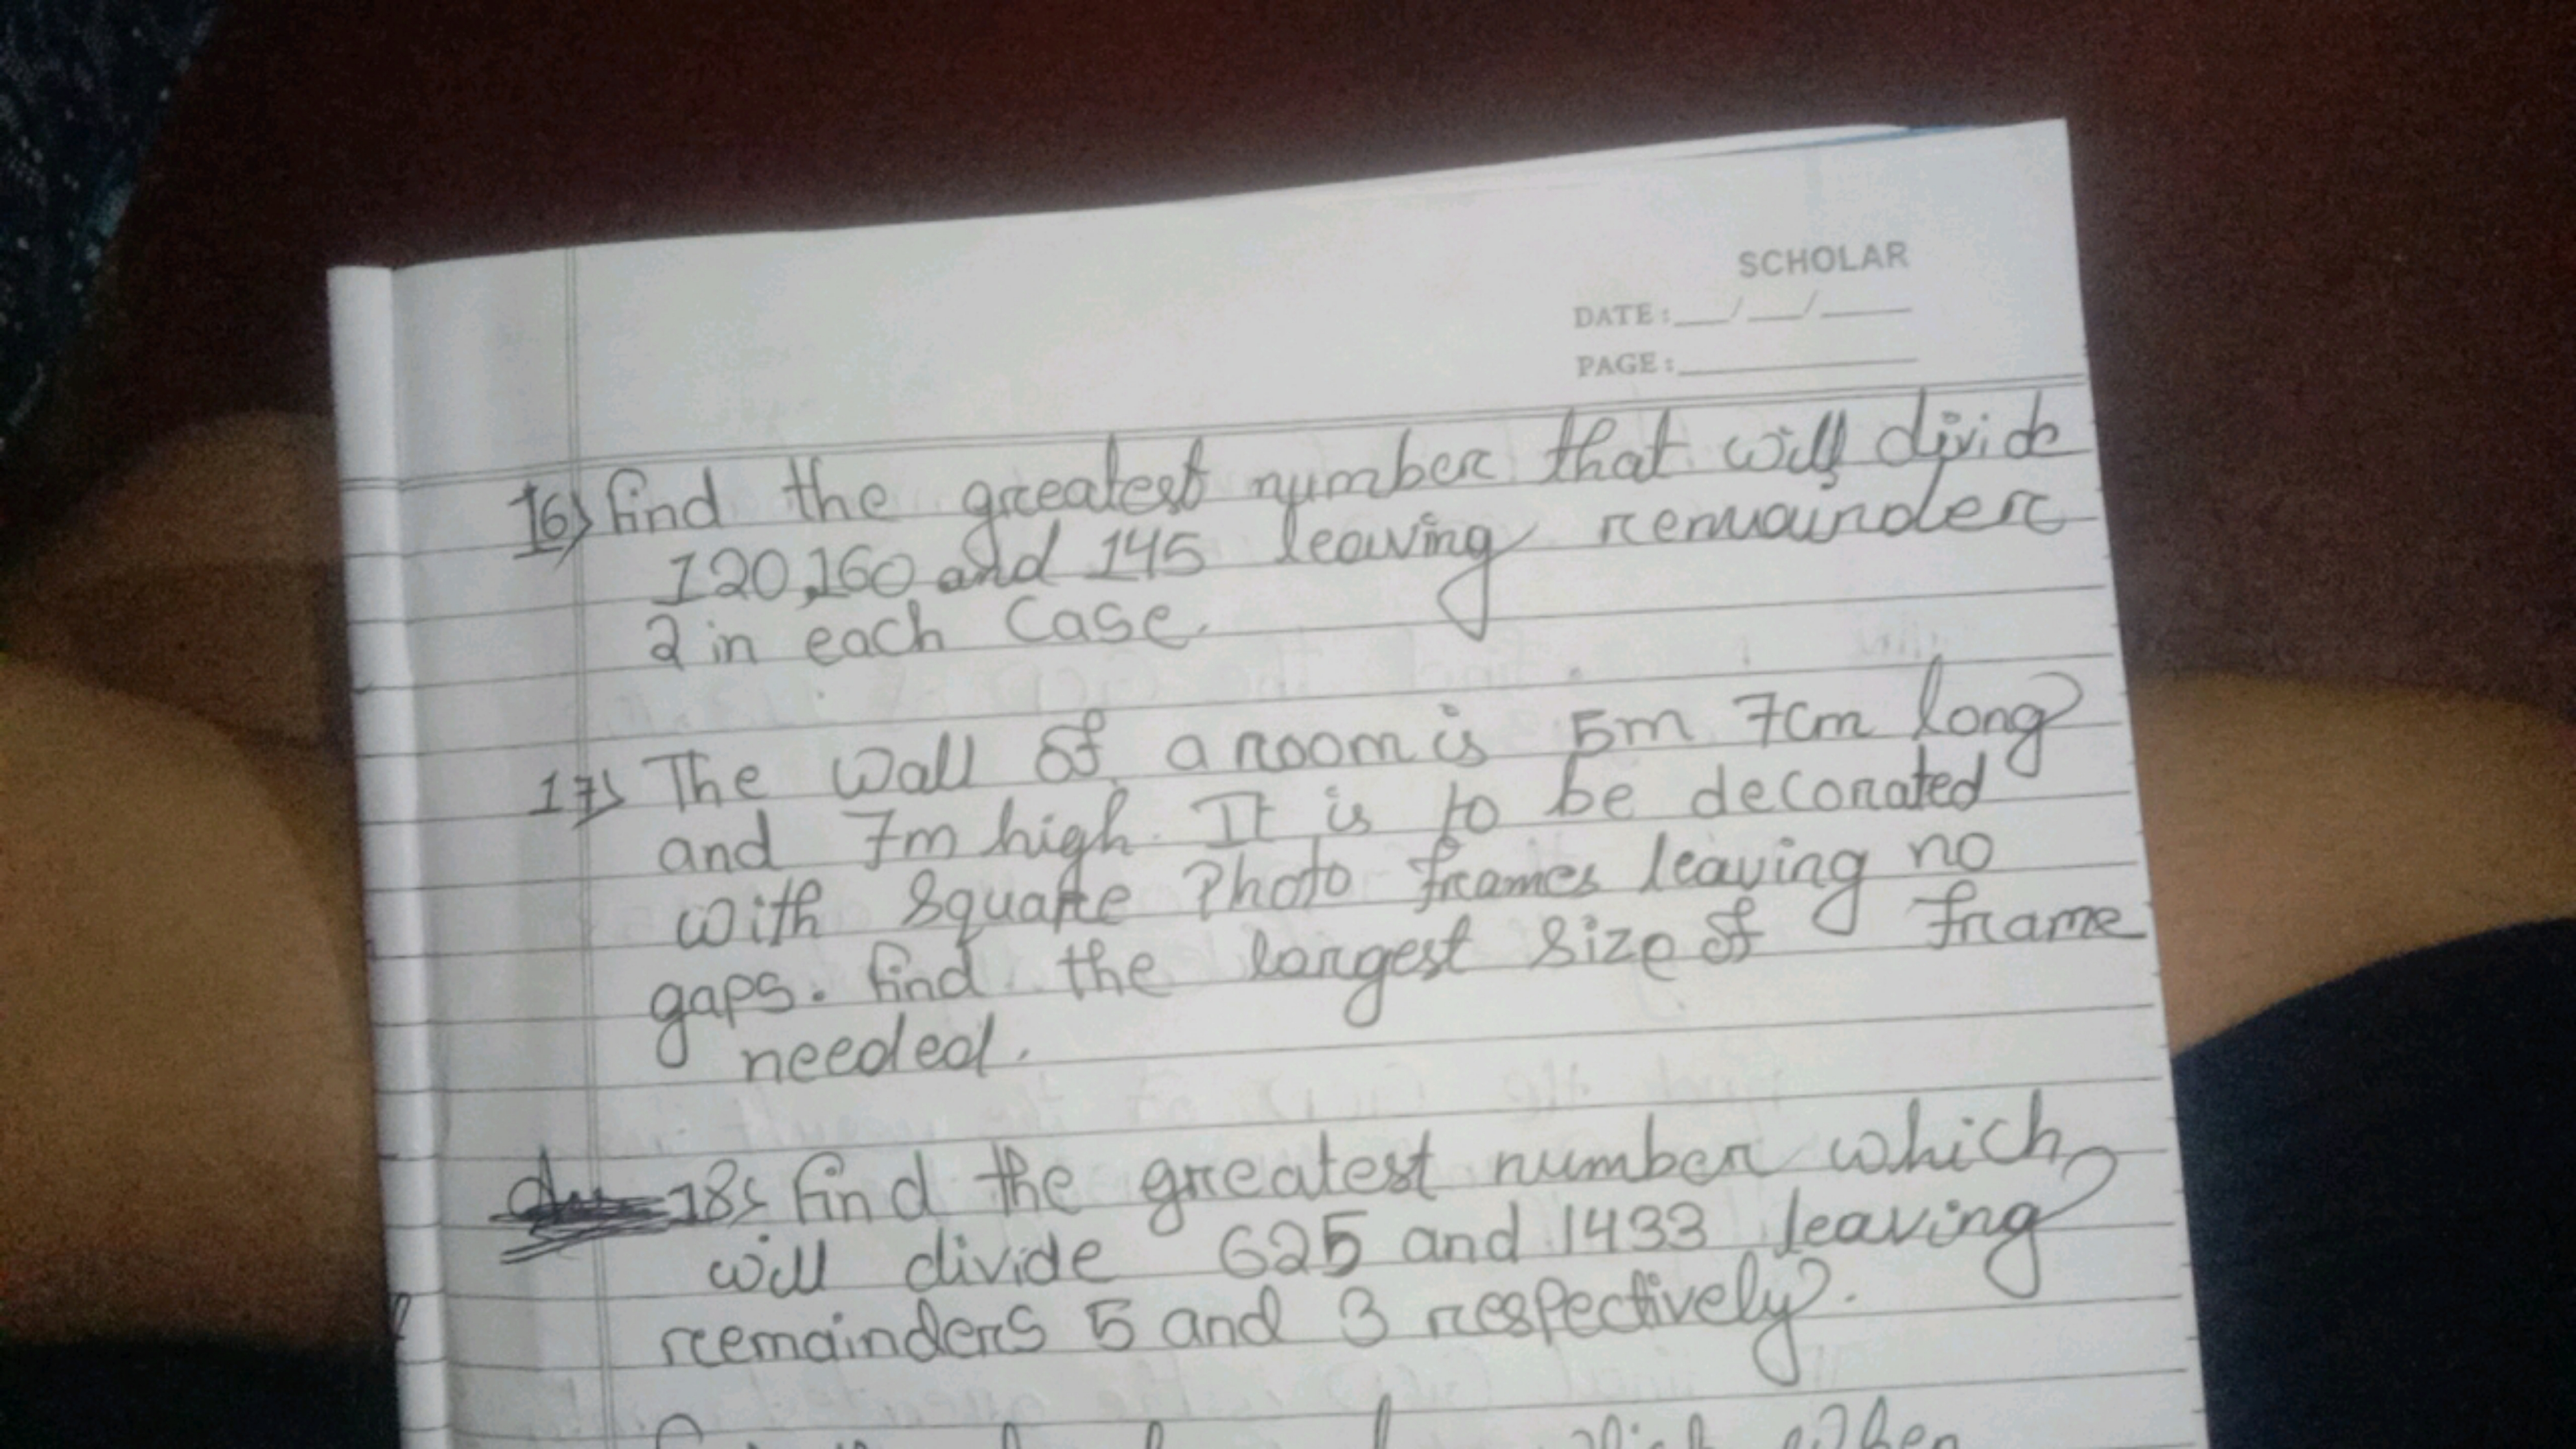 SCHOLAR
DATE:___/___/____
PAGE:________
16) find the greatest number that will divide
120,160 and 145 leaving remainder
2 in each Case.
17) The Wall of a room is 5m 7cm long
and 7m high. It is to be decorated
with Square Photo frames leaving no
gaps. find the largest Size of frame
needed.
18) find the greatest number which
will divide 625 and 1433 leaving
remainders 5 and 3 respectively.